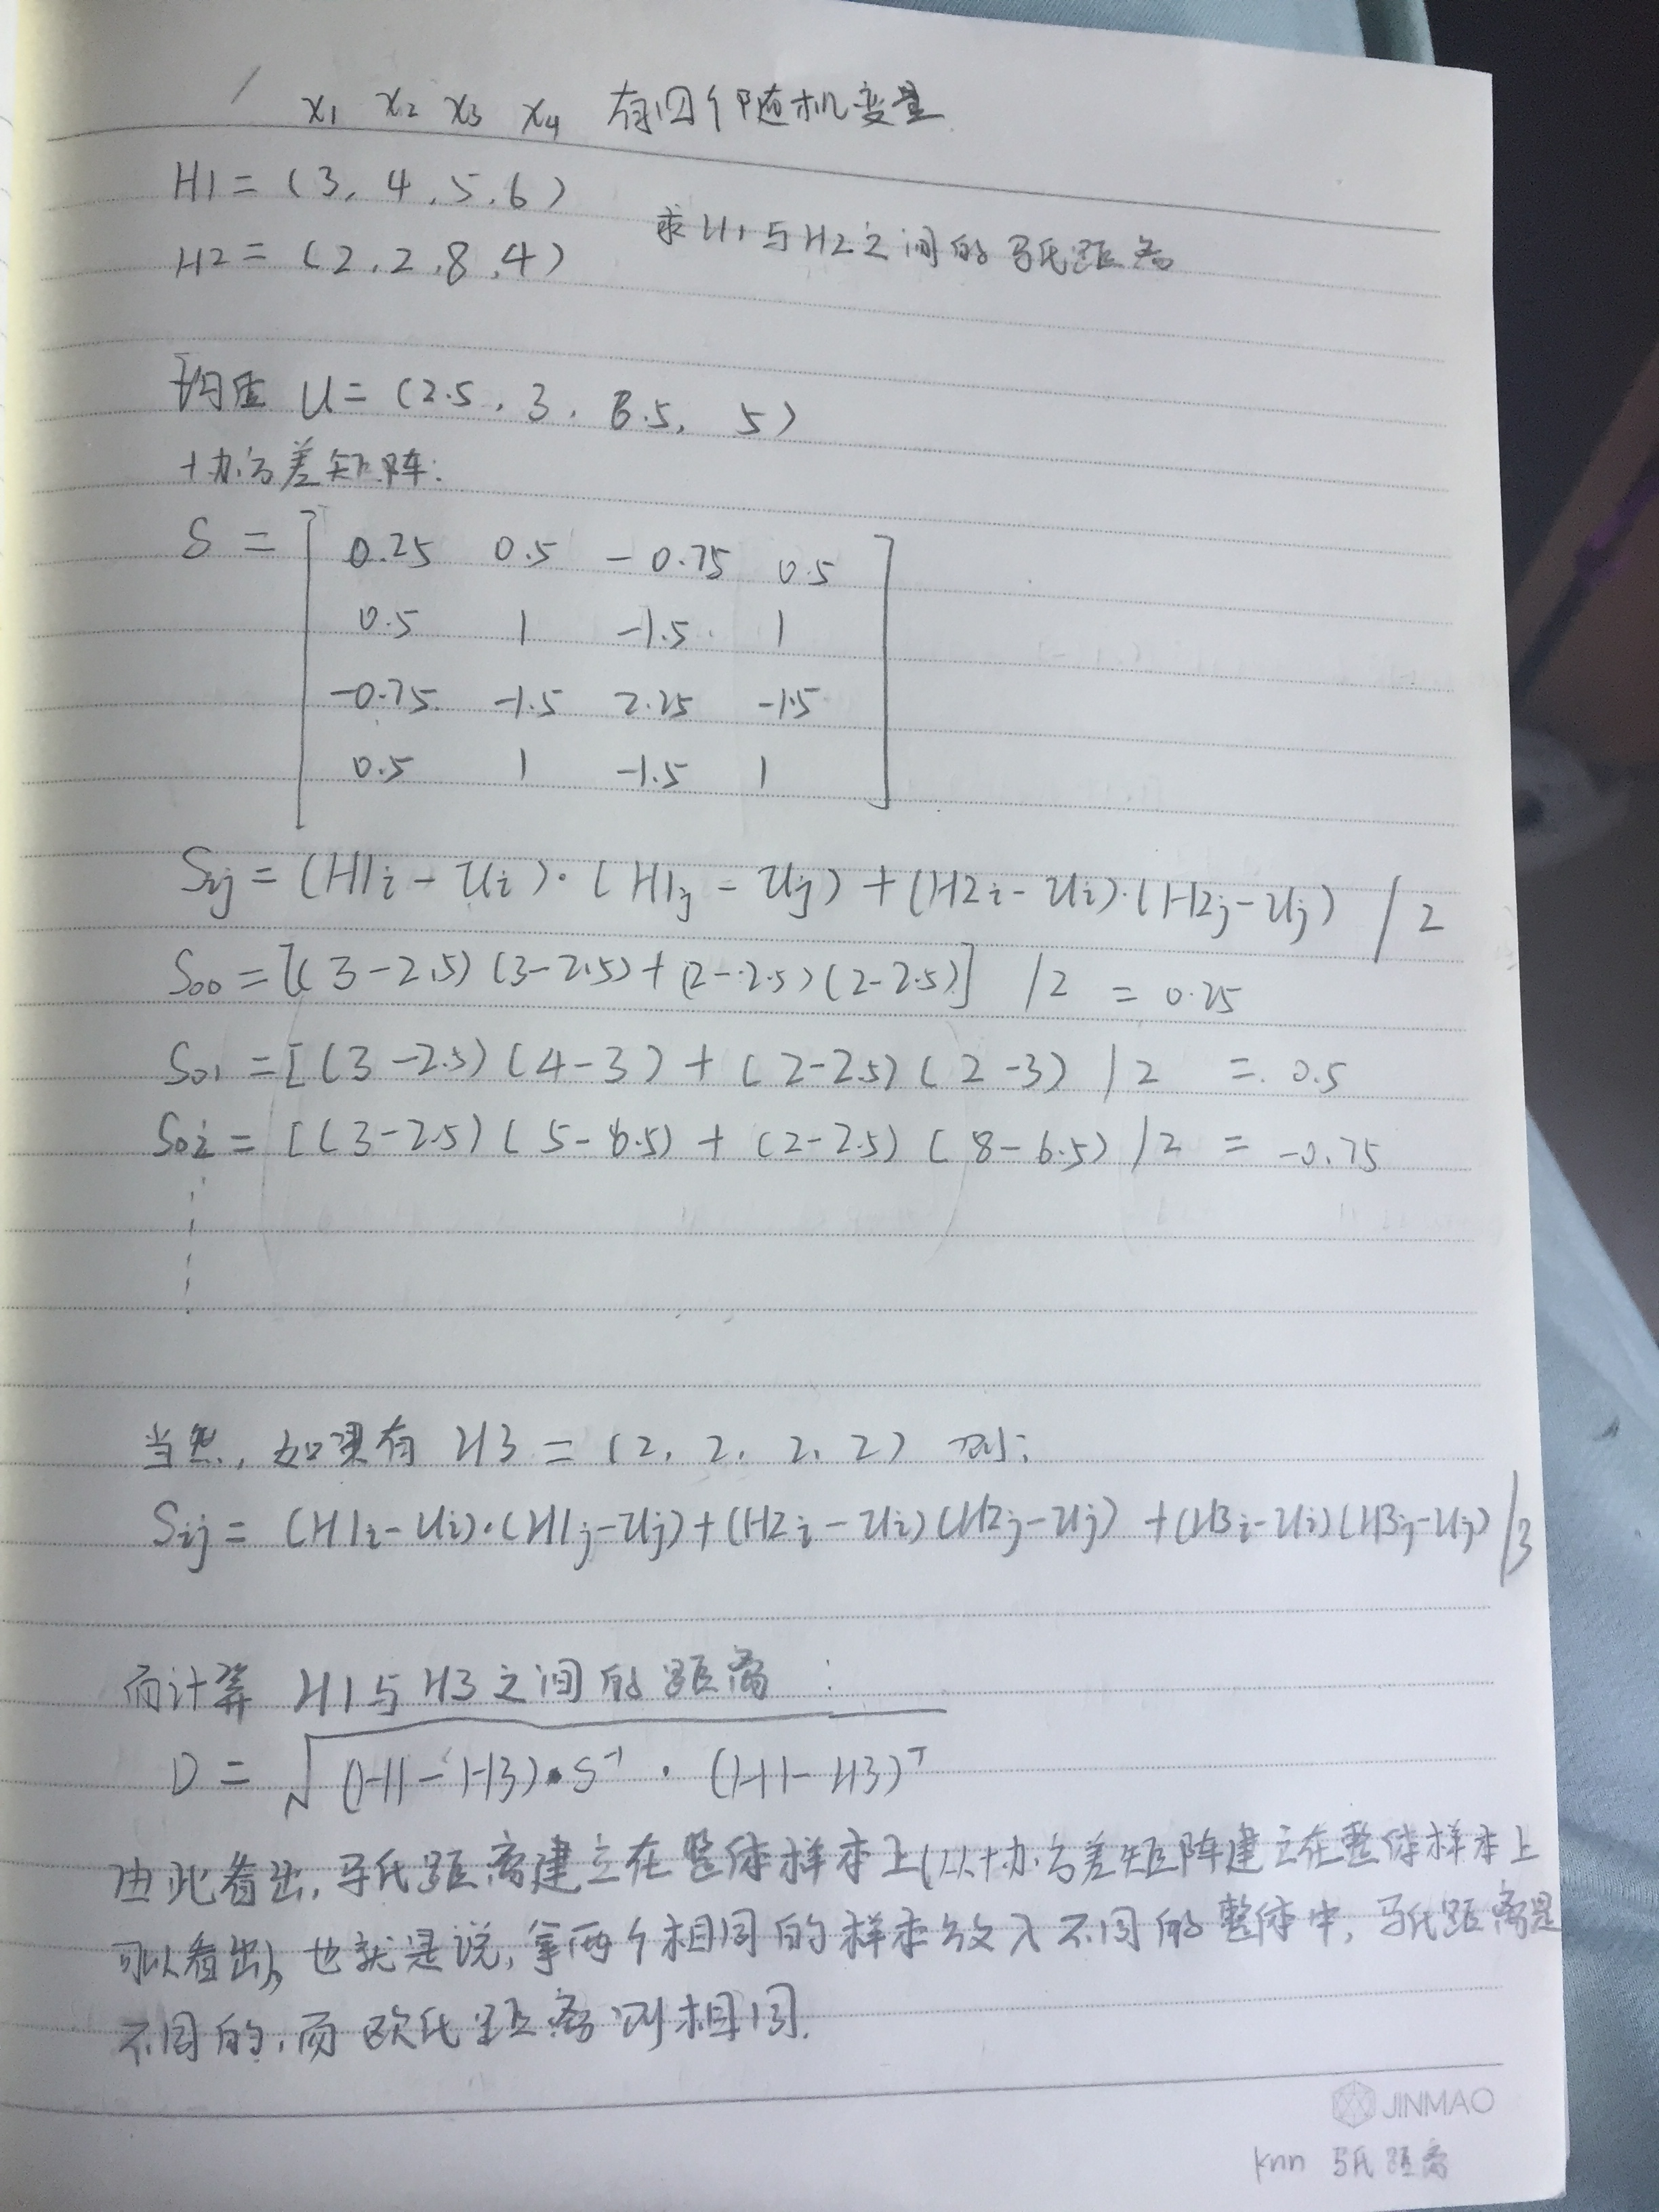 x1 x2 x3 x4 有四个随机变量
H1 = (3, 4, 5, 6)
求H1与H2之间的马氏距离
H2 = (2, 2, 8, 4)
均值 U = (2.5, 3, 6.5, 5)
协方差矩阵:
S = [ 0.25 0.5 -0.75 0.5
0.5 1 -1.5 1
-0.75 -1.5 2.25 -1.5
0.5 1 -1.5 1 ]
Sij = (H1i - Ui)·(H1j - Uj) + (H2i - Ui)·(H2j - Uj) / 2
S00 = [(3-2.5)(3-2.5)+(2-2.5)(2-2.5)] / 2 = 0.25
S01 = [(3-2.5)(4-3) + (2-2.5)(2-3) / 2 = 0.5
S02 = [(3-2.5)(5-6.5) + (2-2.5)(8-6.5) / 2 = -0.75
当然, 如果有 H3 = (2, 2, 2, 2) 则:
Sij = (H1i-Ui)·(H1j-Uj)+(H2i-Ui)(H2j-Uj)+(H3i-Ui)(H3j-Uj) / 3
而计算 H1与H3之间的距离:
D = √(H1-H3)·S⁻¹·(H1-H3)ᵀ
由此看出, 马氏距离建立在整体样本上(从协方差矩阵建立在整体样本上
可以看出), 也就是说, 拿两个相同的样本放入不同的整体中, 马氏距离是
不同的, 而欧氏距离则相同.
JINMAO
knn 马氏距离